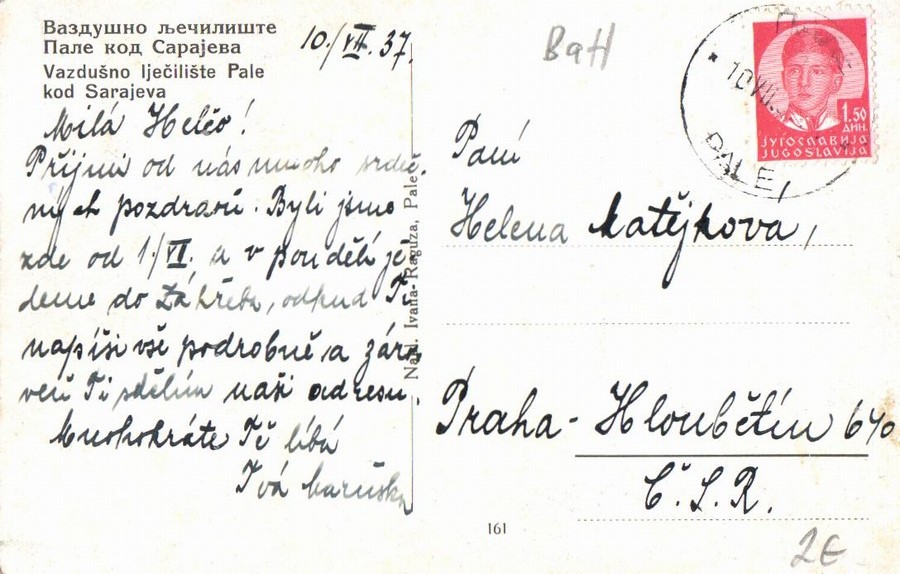 Ваздушно љечилиште
Пале код Сарајева
Vazdušno lječilište Pale
kod Sarajeva
10./VII. 37.
Milá Helčo!
Přijmi od nás mnoho srdeč.
ných pozdravů. Byli jsme
zde od 1./VI. a v pondělí je-
deme do Záhřebu, odkud Ti
napíši vše podrobně a záro
veň Ti sdělím naši adresu.
Mnohokráte Tě líbá
Tvá Maruška
Nakl. Ivana Raguza, Pale
161
BaH
10 VII
PALE
1.50
ДИН.
ЈУГОСЛАВИЈА
JUGOSLAVIJA
Paní
Helena Matějková,
Praha - Hloubětín 640
Č.S.R.
2€